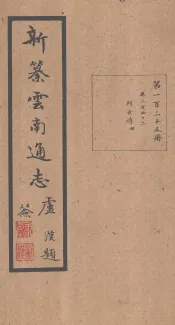 新纂雲南通志
盧漢題
簽
第一百二十五冊
卷二百四十二
列女傳四